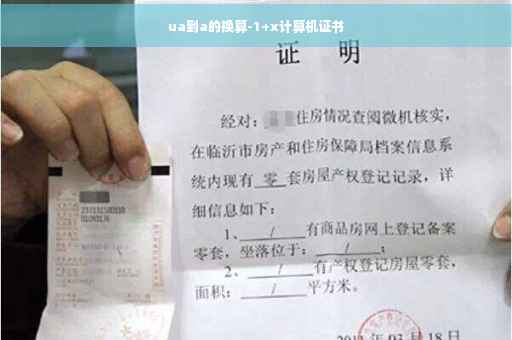 ua到a的换算-1+x计算机证书
证 明
经对：住房情况查阅微机核实，
在临沂市房产和住房保障局档案信息系
统内现有 零 套房屋产权登记记录，详
细信息如下：
1、 / 有商品房网上登记备案
零套，坐落位于： / ；
2、 / 有产权登记房屋零套，
面积： / 平方米。
03月18日